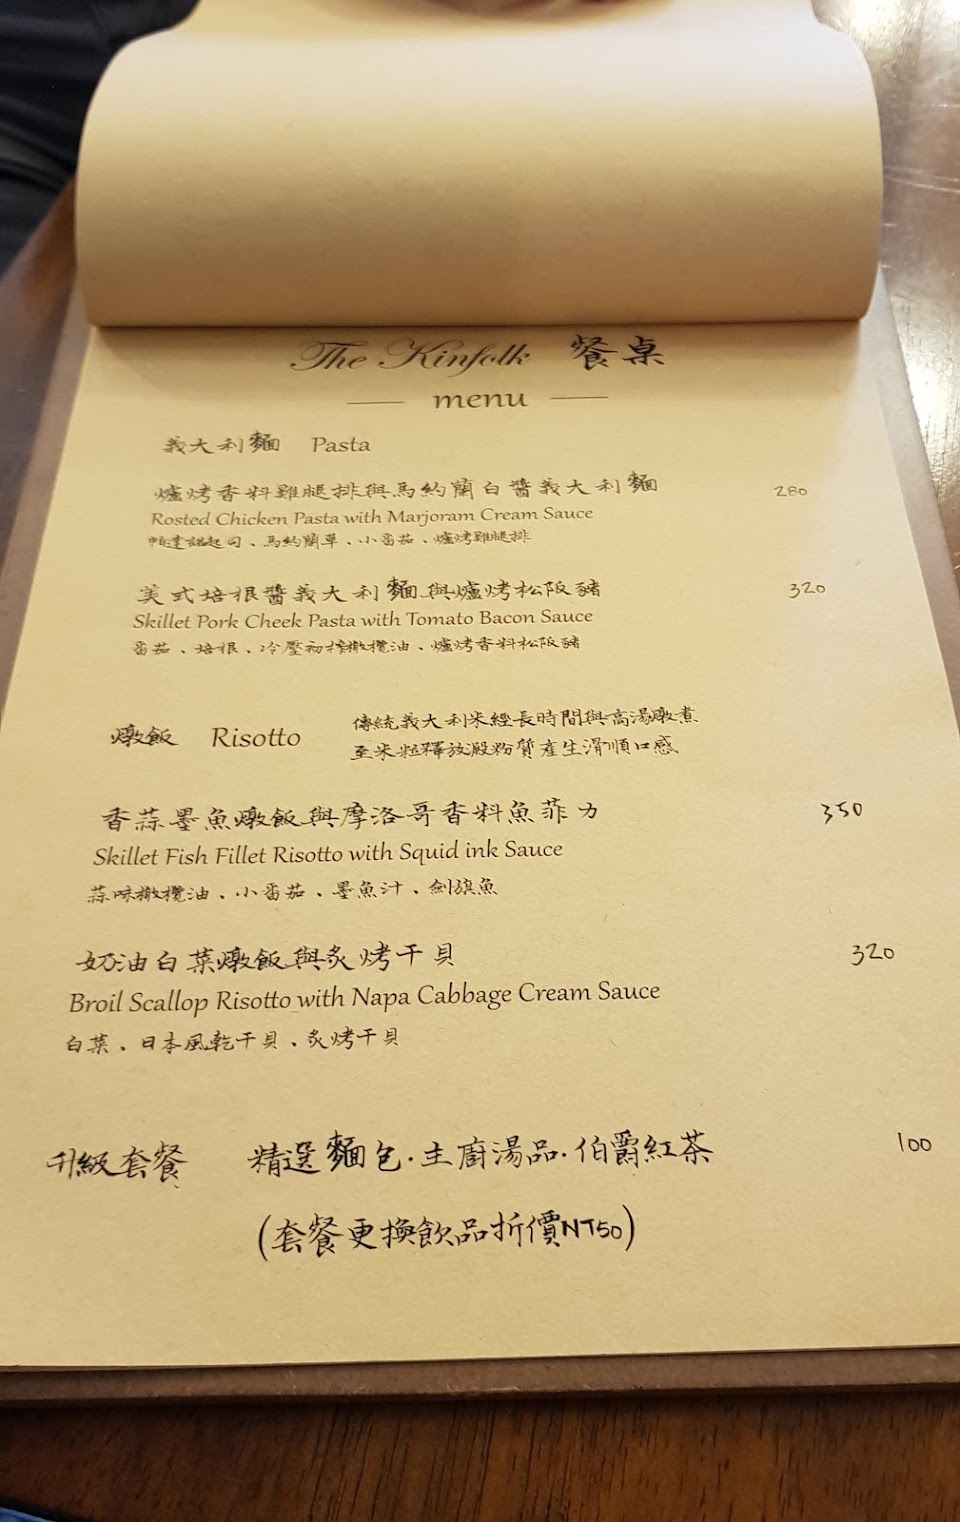 The Kinfolk 餐桌
menu
義大利麵 Pasta
爐烤香料雞腿排與馬約蘭白醬義大利麵 280
Rosted Chicken Pasta with Marjoram Cream Sauce
帕達諾起司、馬約蘭草、小番茄、爐烤雞腿排
美式培根醬義大利麵與爐烤松阪豬 320
Skillet Pork Cheek Pasta with Tomato Bacon Sauce
番茄、培根、冷壓初榨橄欖油、爐烤香料松阪豬
燉飯 Risotto
傳統義大利米經長時間與高湯燉煮
至米粒釋放澱粉質產生滑順口感
香蒜墨魚燉飯與摩洛哥香料魚菲力 350
Skillet Fish Fillet Risotto with Squid ink Sauce
蒜味橄欖油、小番茄、墨魚汁、劍旗魚
奶油白菜燉飯與炙烤干貝 320
Broil Scallop Risotto with Napa Cabbage Cream Sauce
白菜、日本風乾干貝、炙烤干貝
升級套餐 精選麵包·主廚湯品·伯爵紅茶 100
(套餐更換飲品折價NT50)